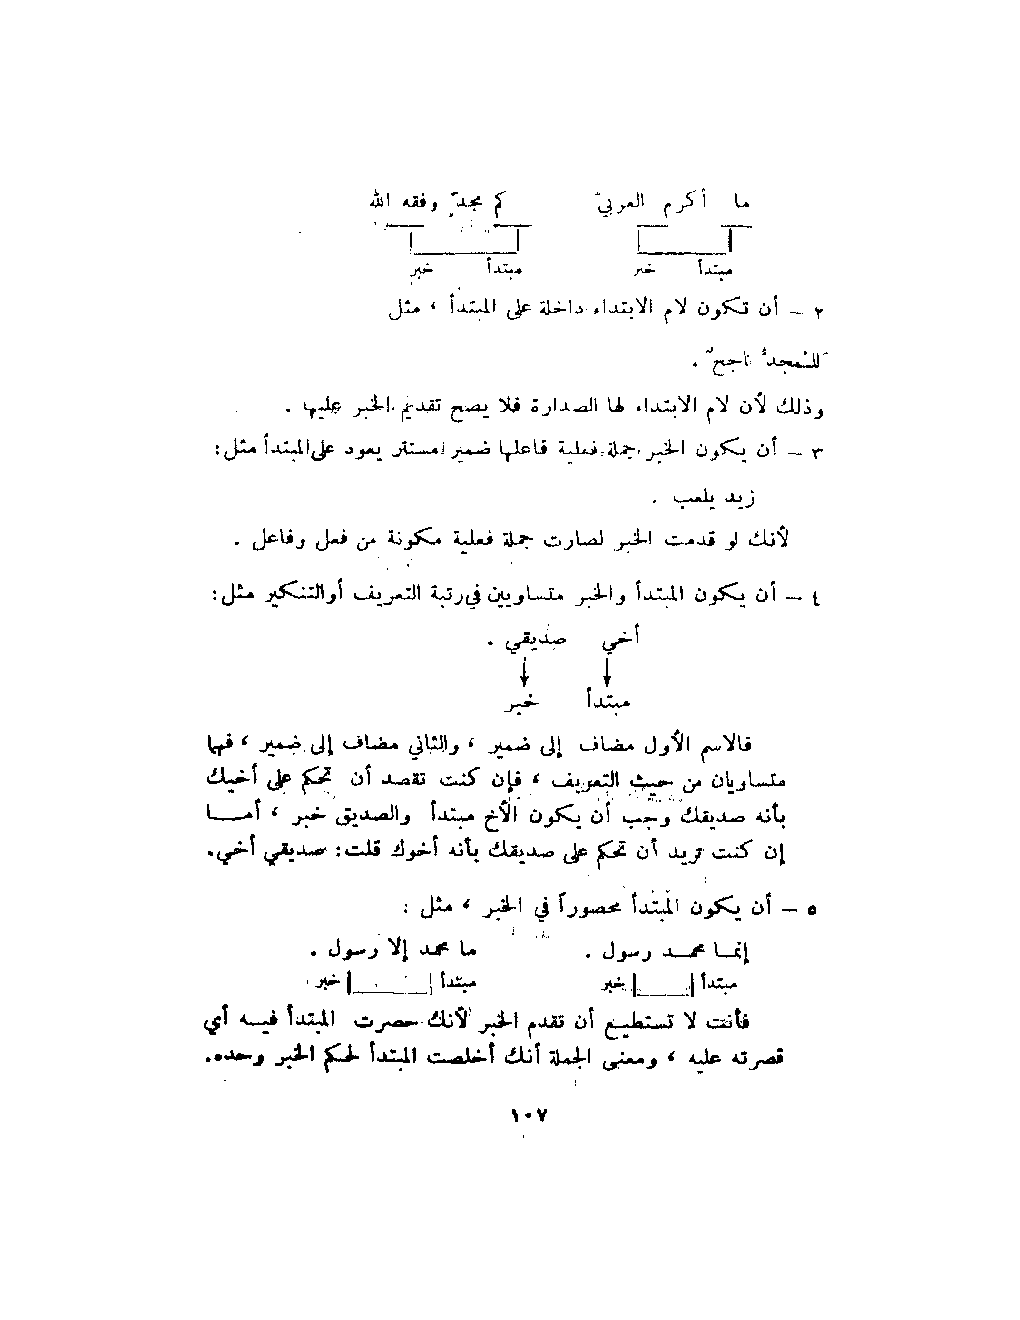 ما أكرم العربيّ كم مجدٍّ وفقه الله
مبتدأ خبر مبتدأ خبر
٢ – أن تكون لام الابتداء داخلة على المبتدأ ، مثل
لَلمُجدُّ ناجحٌ .
وذلك لأن لام الابتداء لها الصدارة فلا يصح تقديم الخبر عليها .
٣ – أن يكون الخبر جملة فعلية فاعلها ضمير مستتر يعود على المبتدأ مثل :
زيد يلعب .
لأنك لو قدمت الخبر لصارت جملة فعلية مكونة من فعل وفاعل .
٤ – أن يكون المبتدأ والخبر متساويين في رتبة التعريف أو التنكير مثل :
أخي صديقي .
مبتدأ خبر
فالاسم الأول مضاف إلى ضمير ، والثاني مضاف إلى ضمير ، فهما
متساويان من حيث التعريف ، فإن كنت تقصد أن تحكم على أخيك
بأنه صديقك وجب أن يكون الأخ مبتدأ والصديق خبر ، أمـــا
إن كنت تريد أن تحكم على صديقك بأنه أخوك قلت : صديقي أخي .
٥ – أن يكون المبتدأ محصوراً في الخبر ، مثل :
إنمـا محمـد رسول . ما محمد إلا رسول .
مبتدأ خبر مبتدأ خبر
فأنت لا تستطيـع أن تقدم الخبر لأنك حصرت المبتدأ فيـه أي
قصرته عليه ، ومعنى الجملة أنك أخلصت المبتدأ لحكم الخبر وحده .
١٠٧